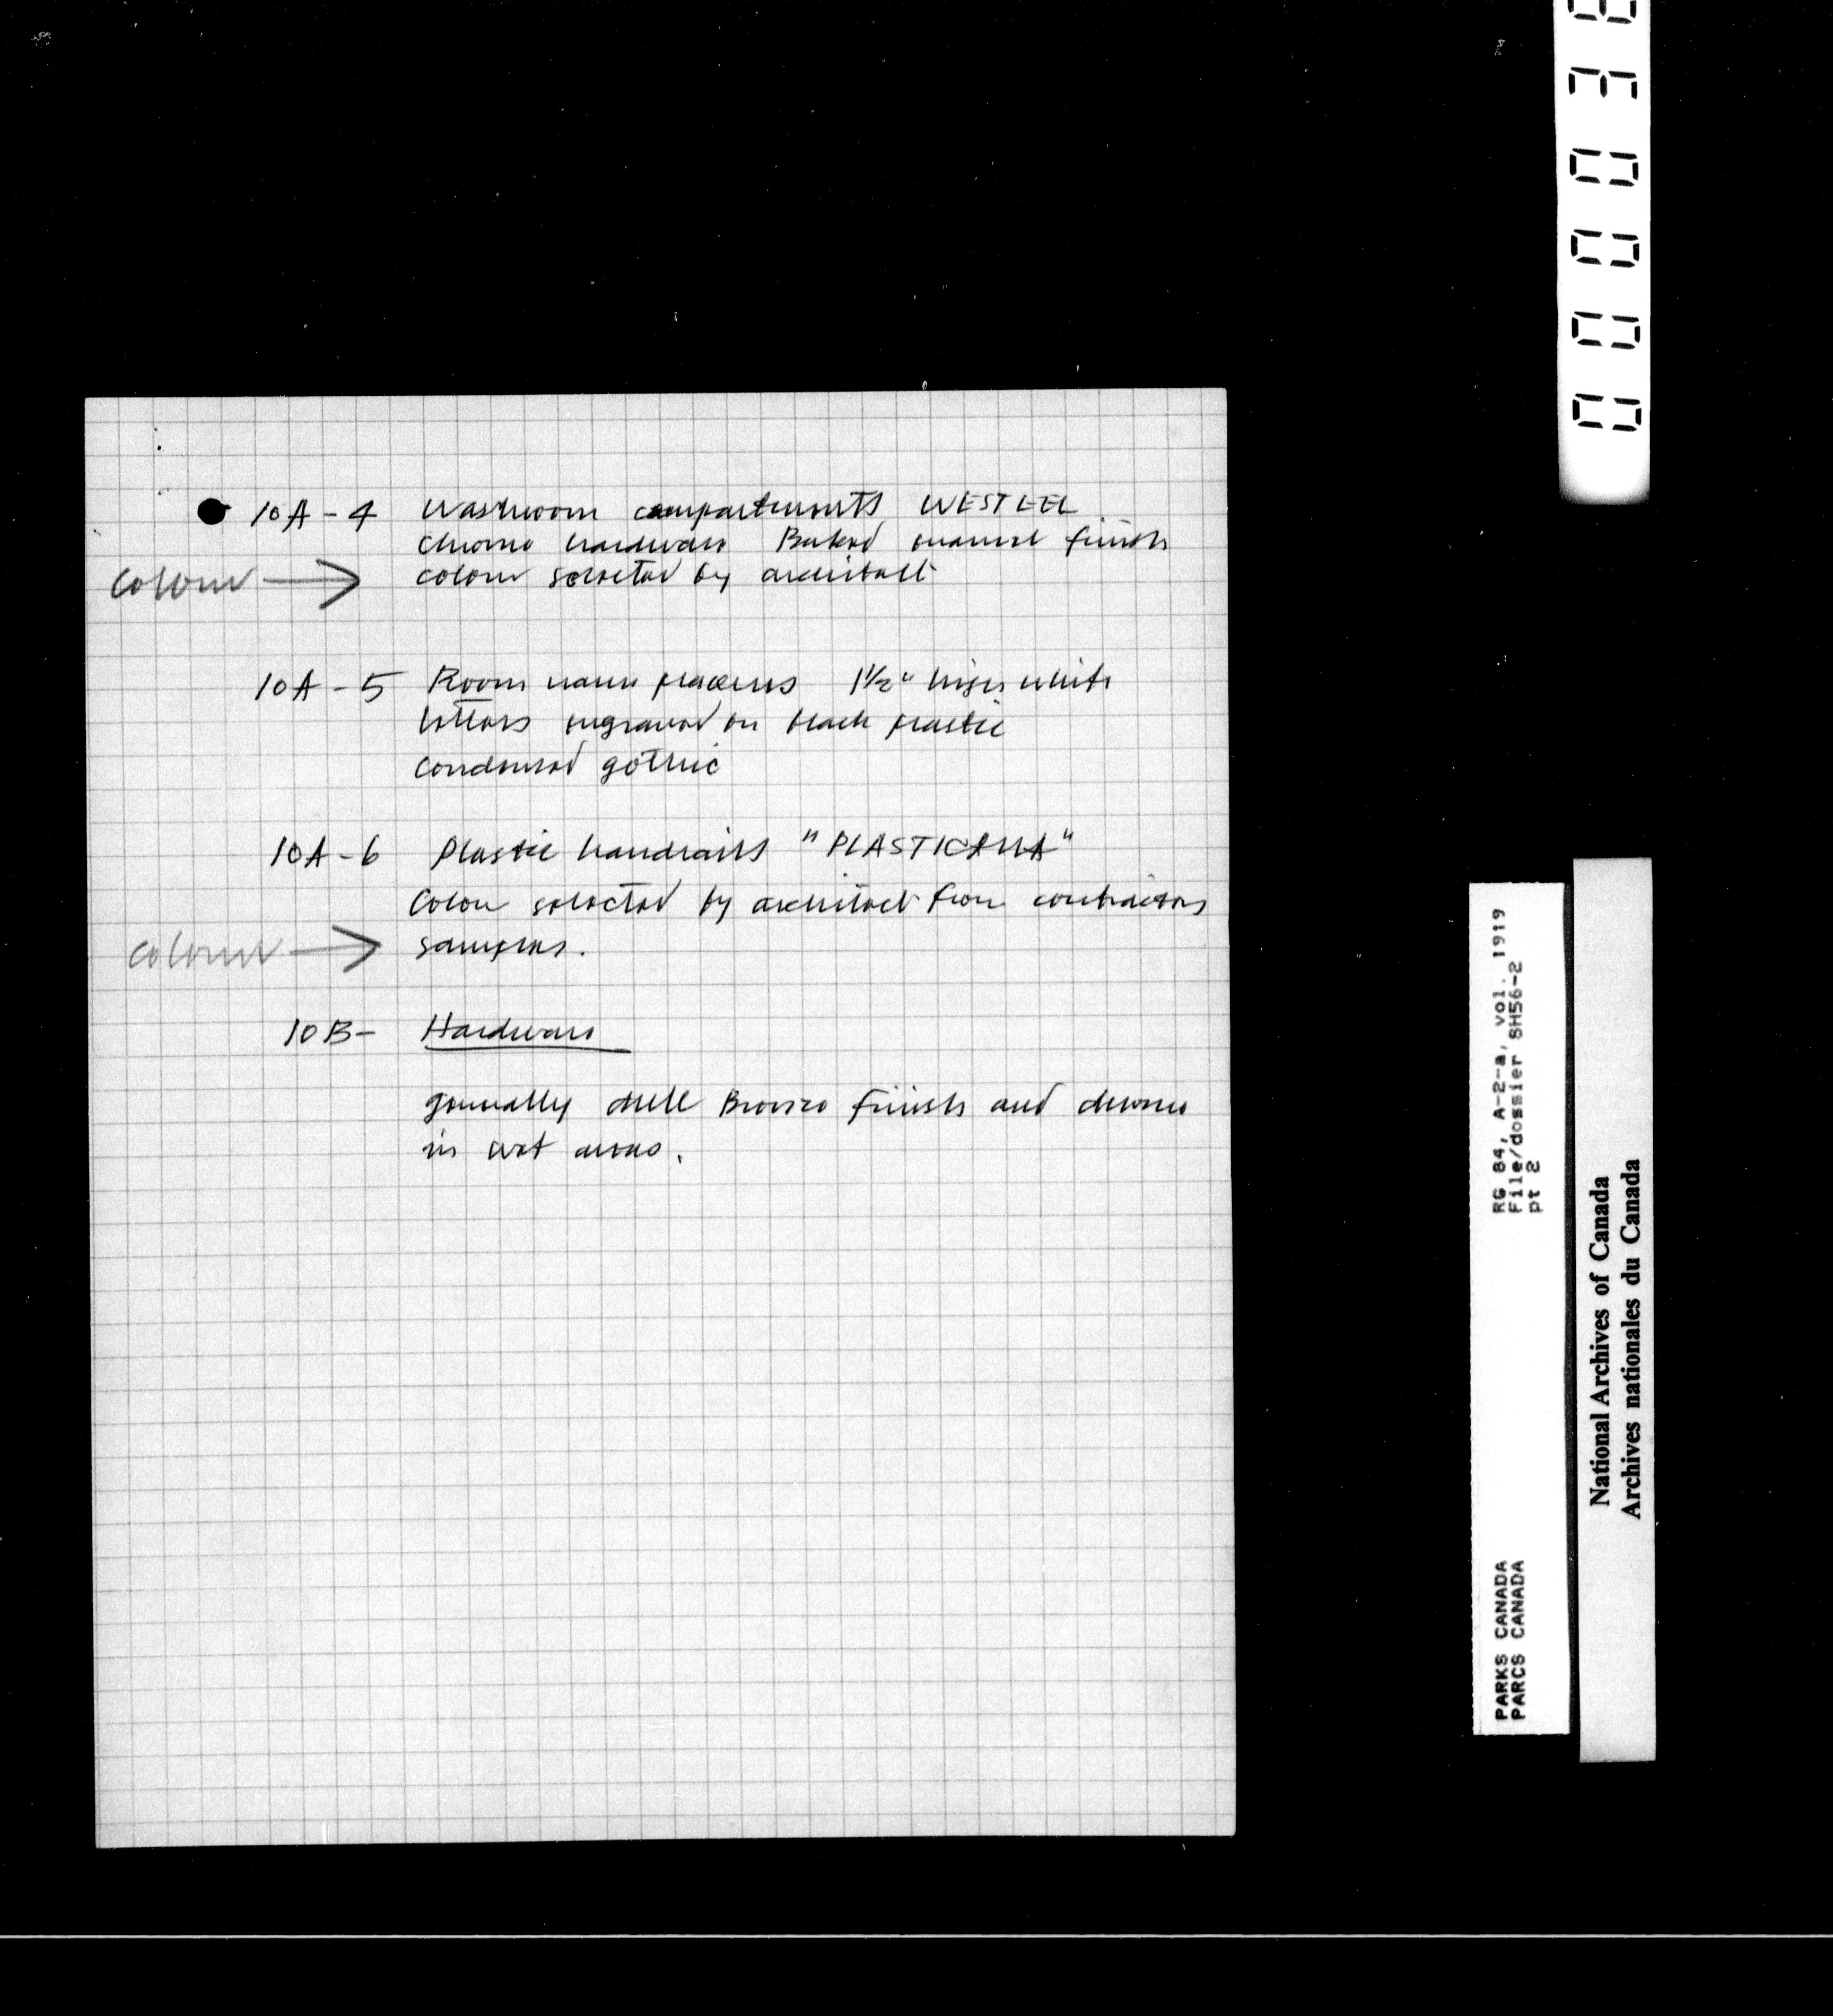 10A-4 Washroom compartments WESTEEL
chrome hardware Baked enamel finish
colour → colour selected by architect
10A-5 Room name placques 1½" high white
letters engraved on black plastic
condensed gothic
10A-6 Plastic handrails "PLASTICANA"
Colour selected by architect from contractors
colour → samples.
10B- Hardware
generally dull Bronze finish and chrome
in wet areas.
RG 84, A-2-a, vol. 1919
File/dossier SH56-2
pt 2
PARKS CANADA
PARCS CANADA
National Archives of Canada
Archives nationales du Canada